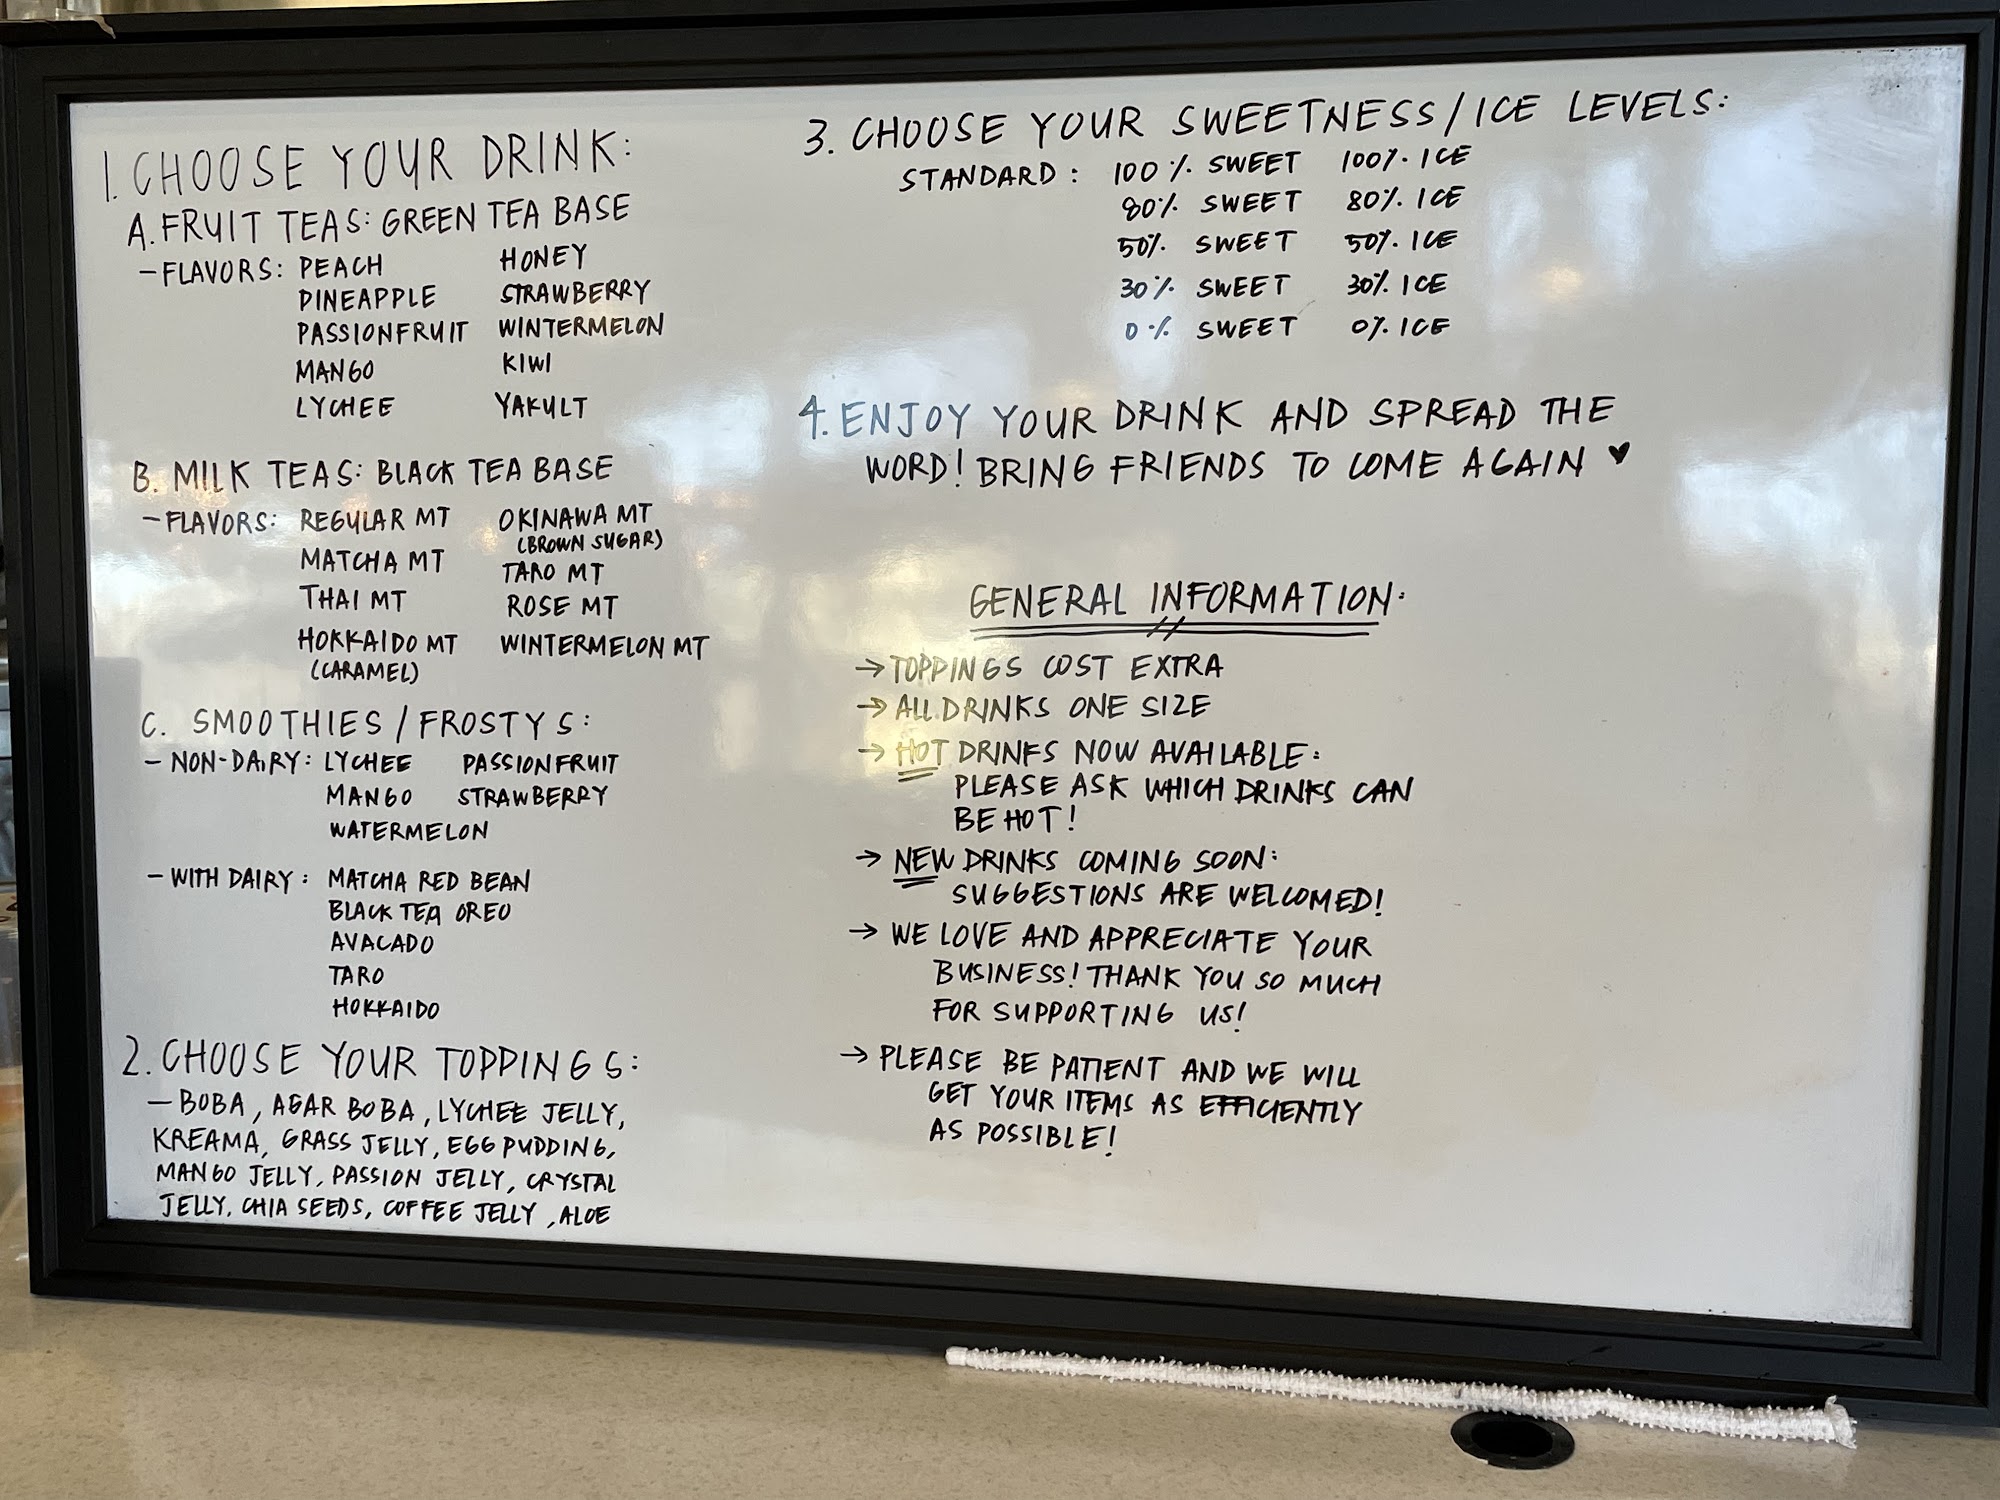 1. CHOOSE YOUR DRINK:
A. FRUIT TEAS: GREEN TEA BASE
- FLAVORS: PEACH HONEY
PINEAPPLE STRAWBERRY
PASSIONFRUIT WINTERMELON
MANGO KIWI
LYCHEE YAKULT
B. MILK TEAS: BLACK TEA BASE
- FLAVORS: REGULAR MT OKINAWA MT
(BROWN SUGAR)
MATCHA MT TARO MT
THAI MT ROSE MT
HOKKAIDO MT WINTERMELON MT
(CARAMEL)
C. SMOOTHIES / FROSTYS:
- NON-DAIRY: LYCHEE PASSIONFRUIT
MANGO STRAWBERRY
WATERMELON
- WITH DAIRY: MATCHA RED BEAN
BLACK TEA OREO
AVACADO
TARO
HOKKAIDO
2. CHOOSE YOUR TOPPINGS:
- BOBA, AGAR BOBA, LYCHEE JELLY,
KREAMA, GRASS JELLY, EGG PUDDING,
MANGO JELLY, PASSION JELLY, CRYSTAL
JELLY, CHIA SEEDS, COFFEE JELLY, ALOE
3. CHOOSE YOUR SWEETNESS/ICE LEVELS:
STANDARD: 100% SWEET 100% ICE
80% SWEET 80% ICE
50% SWEET 50% ICE
30% SWEET 30% ICE
0% SWEET 0% ICE
4. ENJOY YOUR DRINK AND SPREAD THE
WORD! BRING FRIENDS TO COME AGAIN ♥
GENERAL INFORMATION:
→ TOPPINGS COST EXTRA
→ ALL DRINKS ONE SIZE
→ HOT DRINKS NOW AVAILABLE:
PLEASE ASK WHICH DRINKS CAN
BE HOT!
→ NEW DRINKS COMING SOON:
SUGGESTIONS ARE WELCOMED!
→ WE LOVE AND APPRECIATE YOUR
BUSINESS! THANK YOU SO MUCH
FOR SUPPORTING US!
→ PLEASE BE PATIENT AND WE WILL
GET YOUR ITEMS AS EFFICIENTLY
AS POSSIBLE!